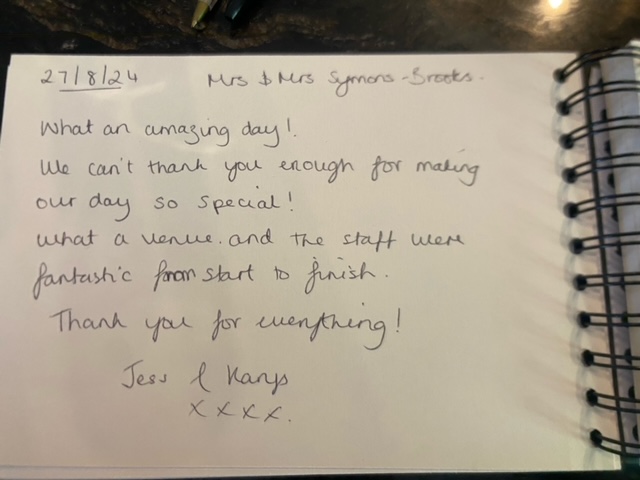 27/8/24 Mrs & Mrs Symons-Brooks.
What an amazing day!
We can't thank you enough for making
our day so special!
what a venue. and the staff were
fantastic from start to finish.
Thank you for everything!
Jess &
x x x x.